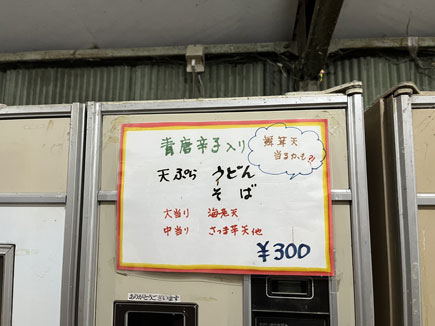 青唐辛子入り
舞茸天
当るかも?!
天ぷら うどん
そば
大当り 海老天
中当り さつま芋天他
¥300
ありがとうございます